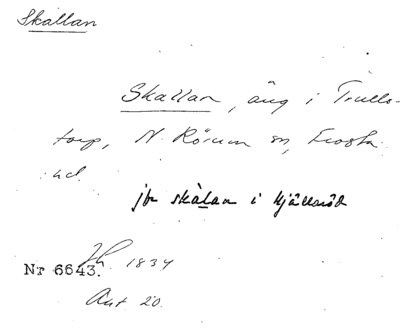 Skallan
Skallan, äng i Trulls-
torp, N. Rörum sn, Frosta
hd.
jfr skàlan i Kjällaröd
Nr 6643. 1834
Ant 20.